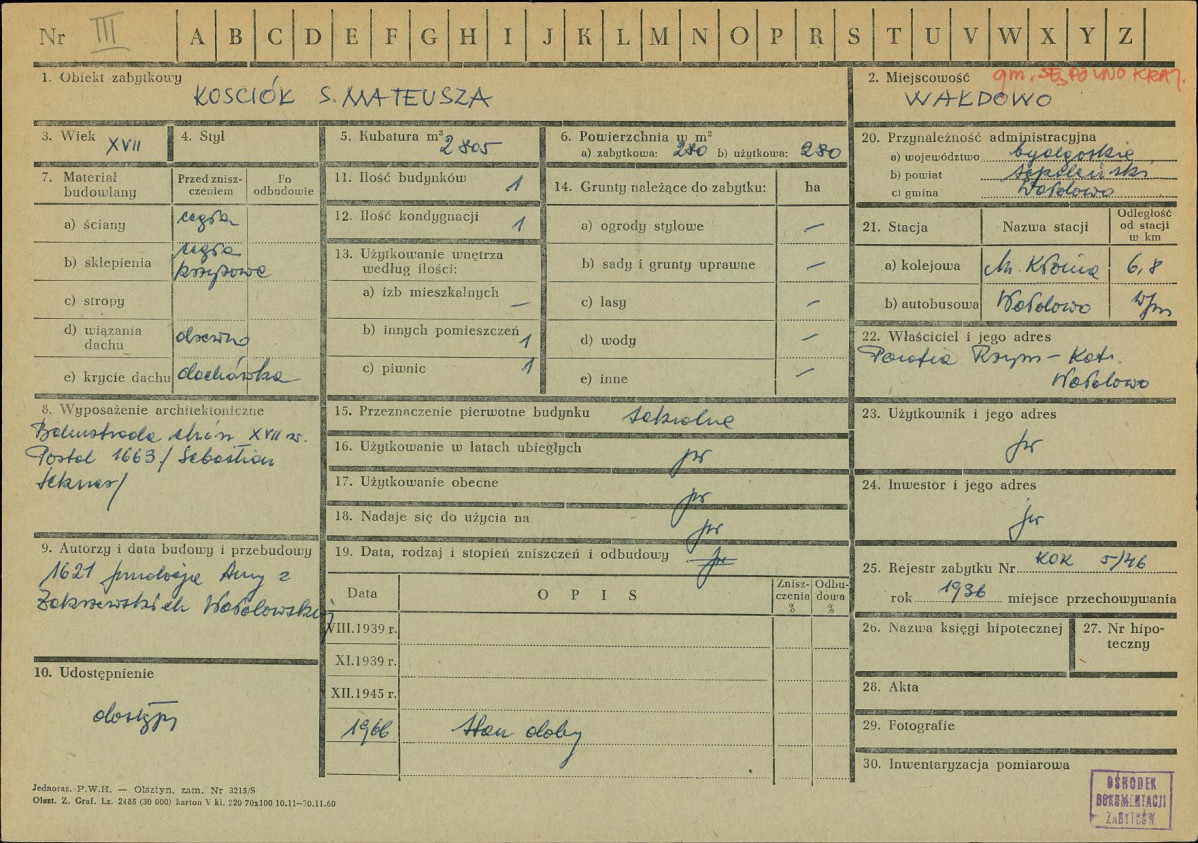 Nr III A B C D E F G H I J K L M N O P R S T U V W X Y Z
1. Obiekt zabytkowy
KOSCIÓŁ S. MATEUSZA
2. Miejscowość gm. SĘPOLNO KRAJ.
WAŁDOWO
3. Wiek XVII
4. Styl
5. Kubatura m³ 2805
6. Powierzchnia w m²
a) zabytkowa: 280 b) użytkowa: 280
7. Materiał budowlany
Przed zniszczeniem
Po odbudowie
a) ściany cegła
b) sklepienia cegła krzyżowe
c) stropy
d) wiązania dachu drewno
e) krycie dachu dachówka
8. Wyposażenie architektoniczne
Balustrada XVII w.
Portal 1663 / Sebastian
9. Autorzy i data budowy i przebudowy
1621 fundacja Anny z
Zakrzewskich Wałdowskiej
10. Udostępnienie
dostępny
11. Ilość budynków 1
12. Ilość kondygnacji 1
13. Użytkowanie wnętrza według ilości:
a) izb mieszkalnych —
b) innych pomieszczeń 1
c) piwnic 1
14. Grunty należące do zabytku: ha
a) ogrody stylowe —
b) sady i grunty uprawne —
c) lasy —
d) wody —
e) inne —
15. Przeznaczenie pierwotne budynku sakralne
16. Użytkowanie w latach ubiegłych jw
17. Użytkowanie obecne jw
18. Nadaje się do użycia na jw
19. Data, rodzaj i stopień zniszczeń i odbudowy jw
Data
OPIS
Zniszczenia %
Odbudowa %
VIII.1939 r.
XI.1939 r.
XII.1945 r.
1966 Stan dobry
20. Przynależność administracyjna
a) województwo bydgoskie
b) powiat sępoleński
c) gmina Wałdowo
21. Stacja
Nazwa stacji
Odległość od stacji w km
a) kolejowa 6,8
b) autobusowa Wałdowo w/m
22. Właściciel i jego adres
Parafia Rzym-Kat.
Wałdowo
23. Użytkownik i jego adres
jw
24. Inwestor i jego adres
jw
25. Rejestr zabytku Nr KOK 5/46
rok 1936 miejsce przechowywania
26. Nazwa księgi hipotecznej
27. Nr hipoteczny
28. Akta
29. Fotografie
30. Inwentaryzacja pomiarowa
OŚRODEK
DOKUMENTACJI
ZABYTKÓW
Jednoraz. P.W.H. — Olsztyn, zam. Nr 3215/S
Olszt. Z. Graf. Lz. 2485 (30 000) karton V kl. 220 70x100 10.11—30.11.60